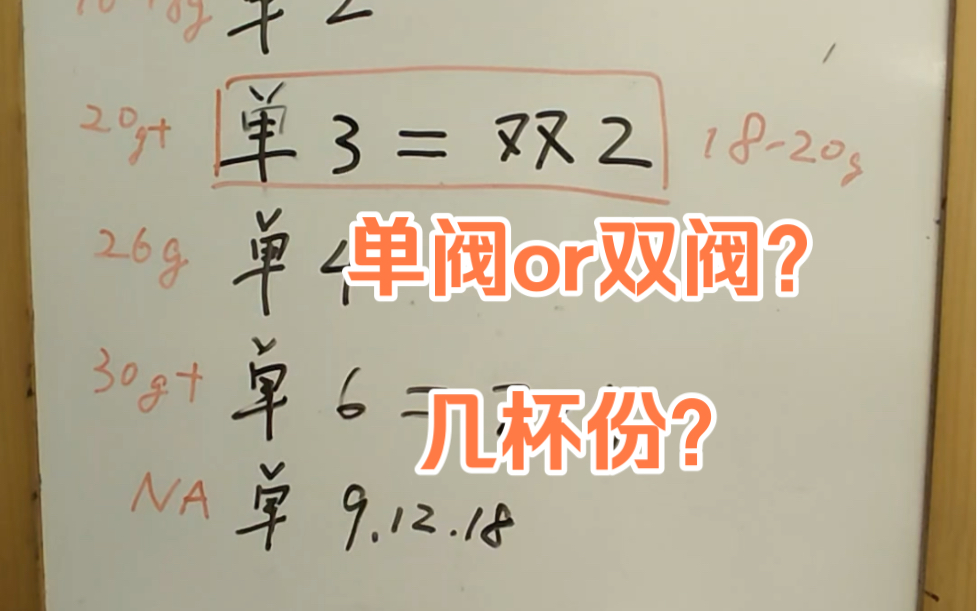 单 2
20g+ 单 3 = 双 2 18-20g
26g 单 4
单阀or双阀?
30g+ 单 6 =
几杯份?
NA 单 9.12.18